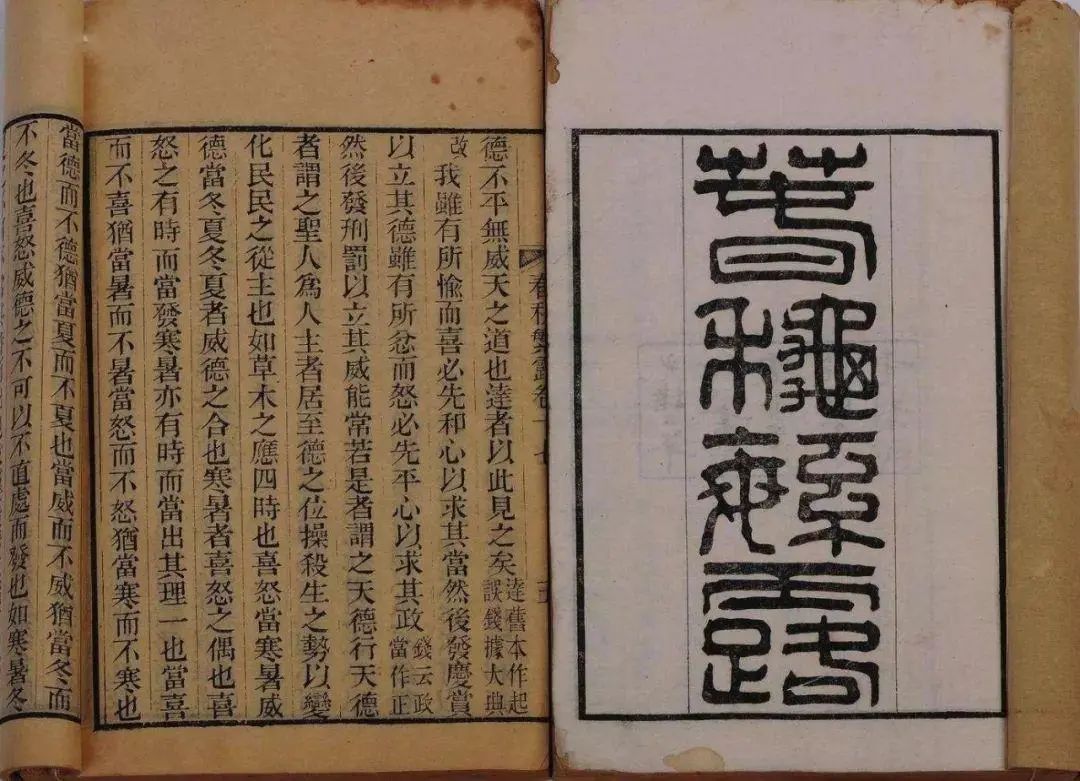 春秋繁露
春秋繁露卷十七
德不平無威天之道也達者以此見之矣達舊本作起誤錢據大典
改我雖有所愉而喜必先和心以求其當然後發慶賞
以立其德雖有所忿而怒必先平心以求其政錢云政當作正
然後發刑罰以立其威能常若是者謂之天德行天德
者謂之聖人為人主者居至德之位操殺生之勢以變
化民民之從主也如草木之應四時也喜怒當寒暑威
德當冬夏冬夏者威德之合也寒暑者喜怒之偶也喜
怒之有時而當發寒暑亦有時而當出其理一也當喜
而不喜猶當暑而不暑當怒而不怒猶當寒而不寒也
當德而不德猶當夏而不夏也當威而不威猶當冬而
不冬也喜怒威德之不可以不直處而發也如寒暑冬